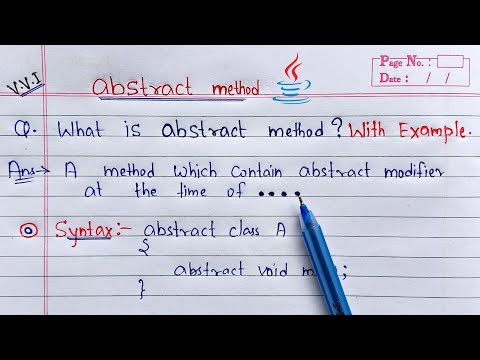 V.V.I
abstract method
Page No. :
Date : / /
Q. What is abstract method? With Example.
Ans→ A method which contain abstract modifier
at the time of ••••
Syntax:- abstract class A
{
abstract void ;
}